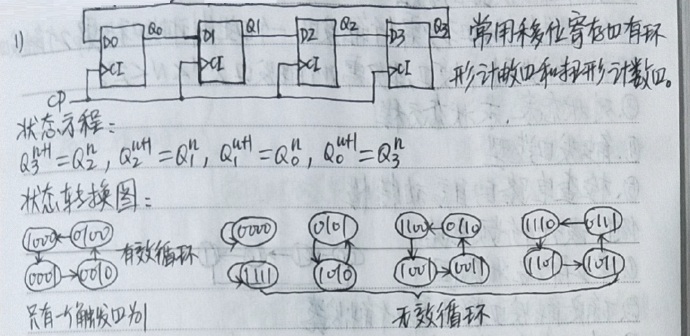 1)
D0 Q0 D1 Q1 D2 Q2 D3 Q3
CI CI CI CI
CP
常用移位寄存四有环
形计数四和扭形计数四。
状态方程：
Q₃ⁿ⁺¹=Q₂ⁿ, Q₂ⁿ⁺¹=Q₁ⁿ, Q₁ⁿ⁺¹=Q₀ⁿ, Q₀ⁿ⁺¹=Q₃ⁿ
状态转换图：
1000 ← 0100 有效循环 0000 0101 1100 ← 0110 1110 ← 0111
0001 → 0010 1111 1010 1001 → 0011 1101 → 1011
只有一个触发四为1
无效循环